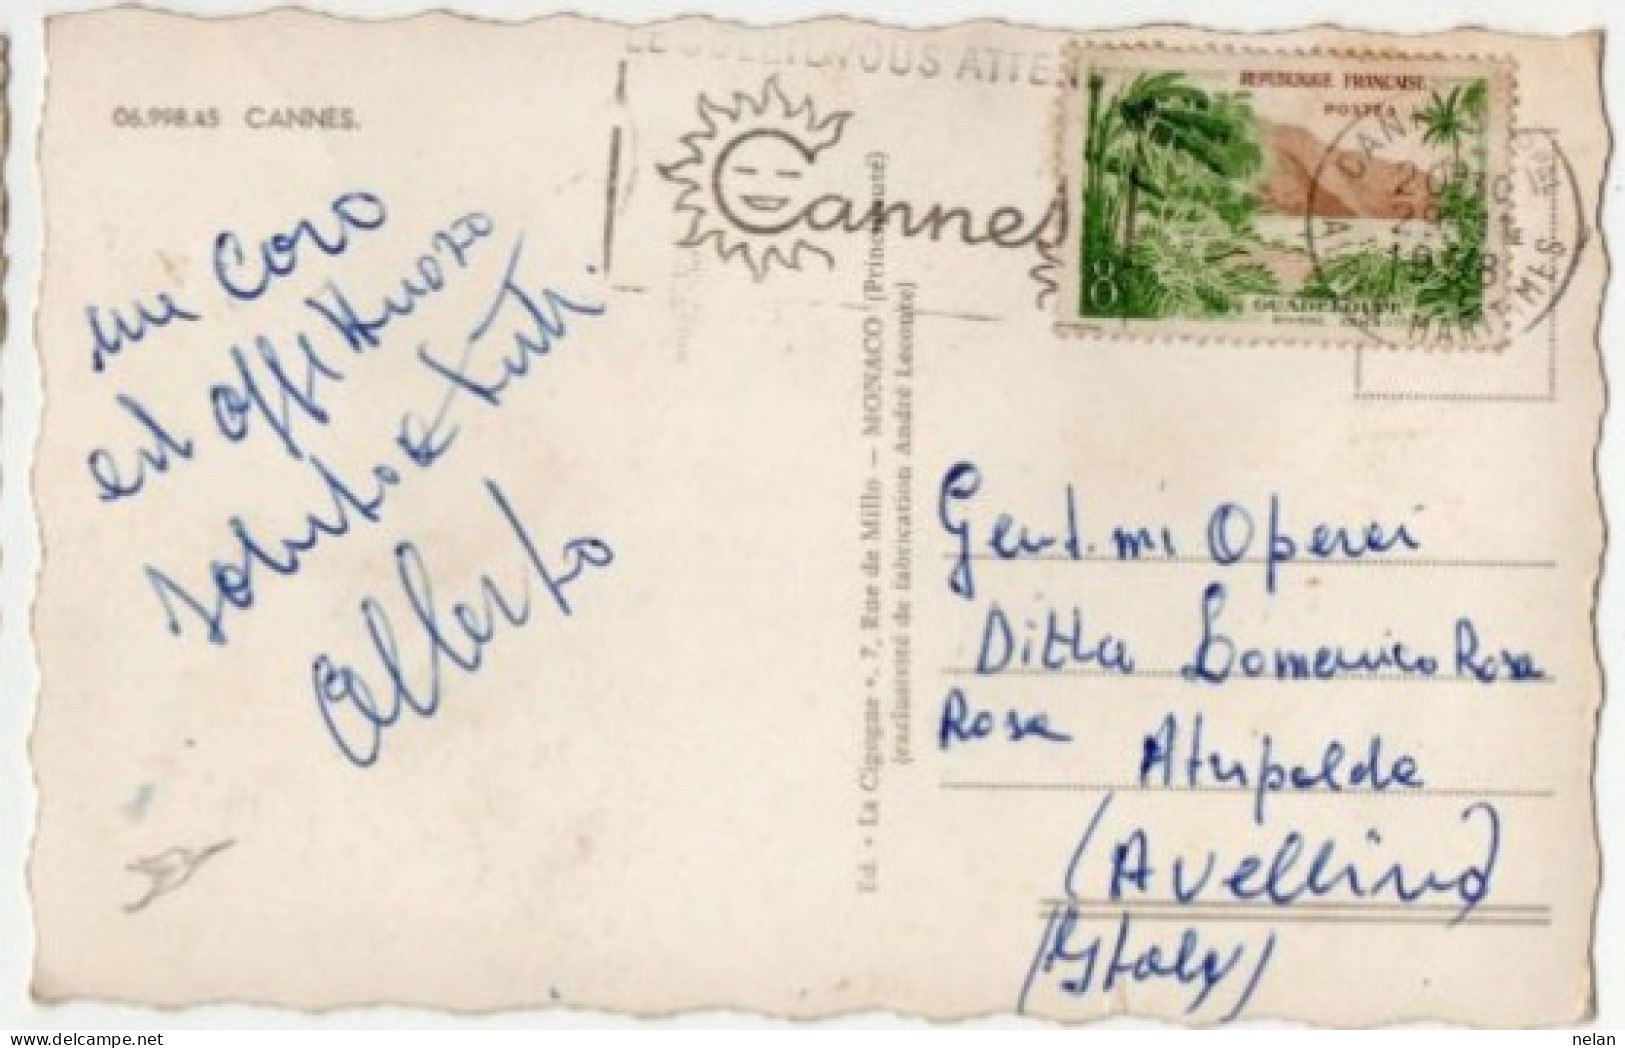 06.998.45 CANNES.
un Caro
ed affettuoso
saluto a tutti.
Alberto
LE SOLEIL VOUS ATTEN
Cannes
REPUBLIQUE FRANÇAISE
POSTES
8
GUADELOUPE
CANNES
20
1958
MARITIMES
Ed. « La Cigogne », 7, Rue de Millo — MONACO (Principauté)
(exclusivité de fabrication André Leconte)
Gent.mi Operai
Ditta Domenico Rosa
Rosa
Atripalda
(Avellino)
(Italy)
nelan